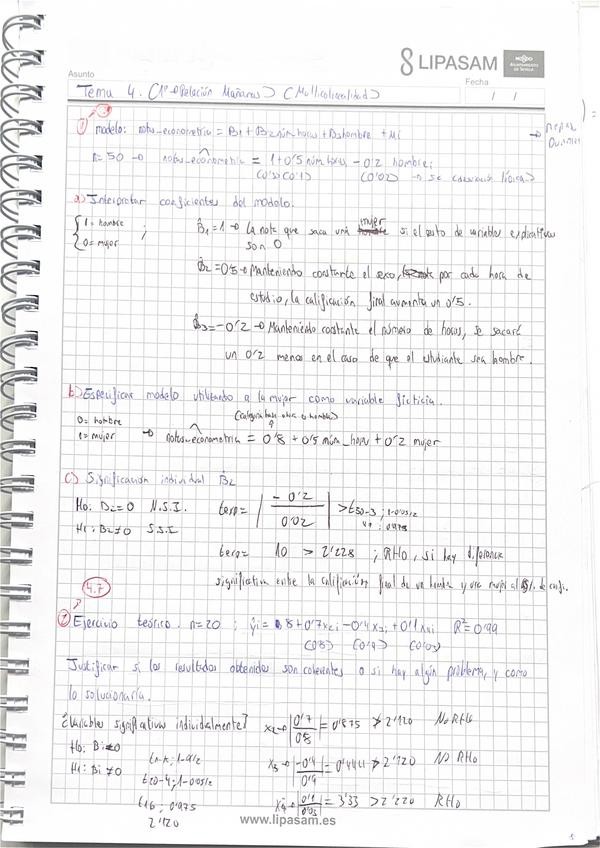 LIPASAM
NO8DO
AYUNTAMIENTO DE SEVILLA
Asunto
Fecha
Tema 4. (1º Relación Mañanas) (Multicolinealidad)
/ /
① modelo: notas_econometria = B1 + B2 núm horas + D3 hombre + Mi
n=50 → notas_econometria = 1 + 0'5 núm horas - 0'2 hombrei
(0'3) (0'1) (0'02) →
a) Interpretar coeficientes del modelo.
{ 1 = hombre
0 = mujer ;
B̂1 = 1 → La nota que saca una mujer si el resto de variables explicativas
son 0
B̂2 = 0'5 → Manteniendo constante el sexo, por cada hora de
estudio, la calificación final aumenta un 0'5.
B̂3 = -0'2 → Manteniendo constante el número de horas, se sacará
un 0'2 menos en el caso de que el estudiante sea hombre.
b) Especificar modelo utilizando a la mujer como variable ficticia.
(categoría base ahora es hombre)
0 = hombre
1 = mujer → notas_econometria = 0'8 + 0'5 núm_horas + 0'2 mujer
c) Significación individual B̂2
Ho: B2 = 0 N.S.I.
H1: B2 ≠ 0 S.S.I
texp = | -0'2 / 0'02 | > t50-3 ; 1-0'05/2
47 ; 0'975
texp = 10 > 2'228 ; RHo, si hay diferencia
significativa entre la calificación final de un hombre y una mujer al 5% de
4.7
② Ejercicio teórico. n=20 ; ŷi = 8 + 0'7x2i - 0'4x3i + 0'1x4i R² = 0'99
(0'8) (0'9) (0'03)
Justificar si los resultados obtenidos son coherentes o si hay algún problema, y como
lo solucionaría.
¿Variables significativas individualmente?
Ho: Bi = 0
H1: Bi ≠ 0
tn-k; 1-α/2
t20-4; 1-0'05/2
t16; 0'975
2'120
x2 → | 0'7 / 0'8 | = 0'875 ≯ 2'120 NO RHo
x3 → | -0'4 / 0'9 | = 0'444 ≯ 2'120 NO RHo
x4 → | 0'1 / 0'03 | = 3'33 > 2'220 RHo
www.lipasam.es